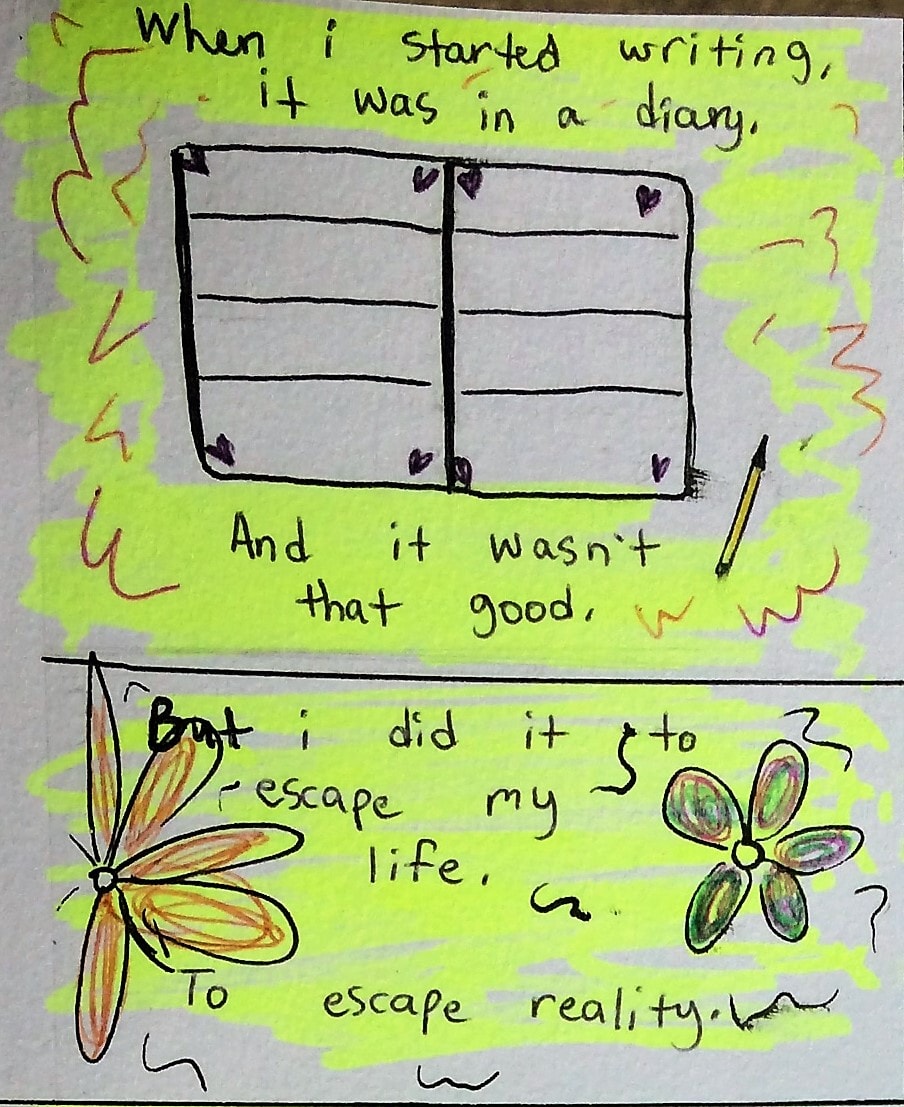 When i started writing,
it was in a diary.
And it wasn't
that good.
But i did it to
escape my
life.
To escape reality.